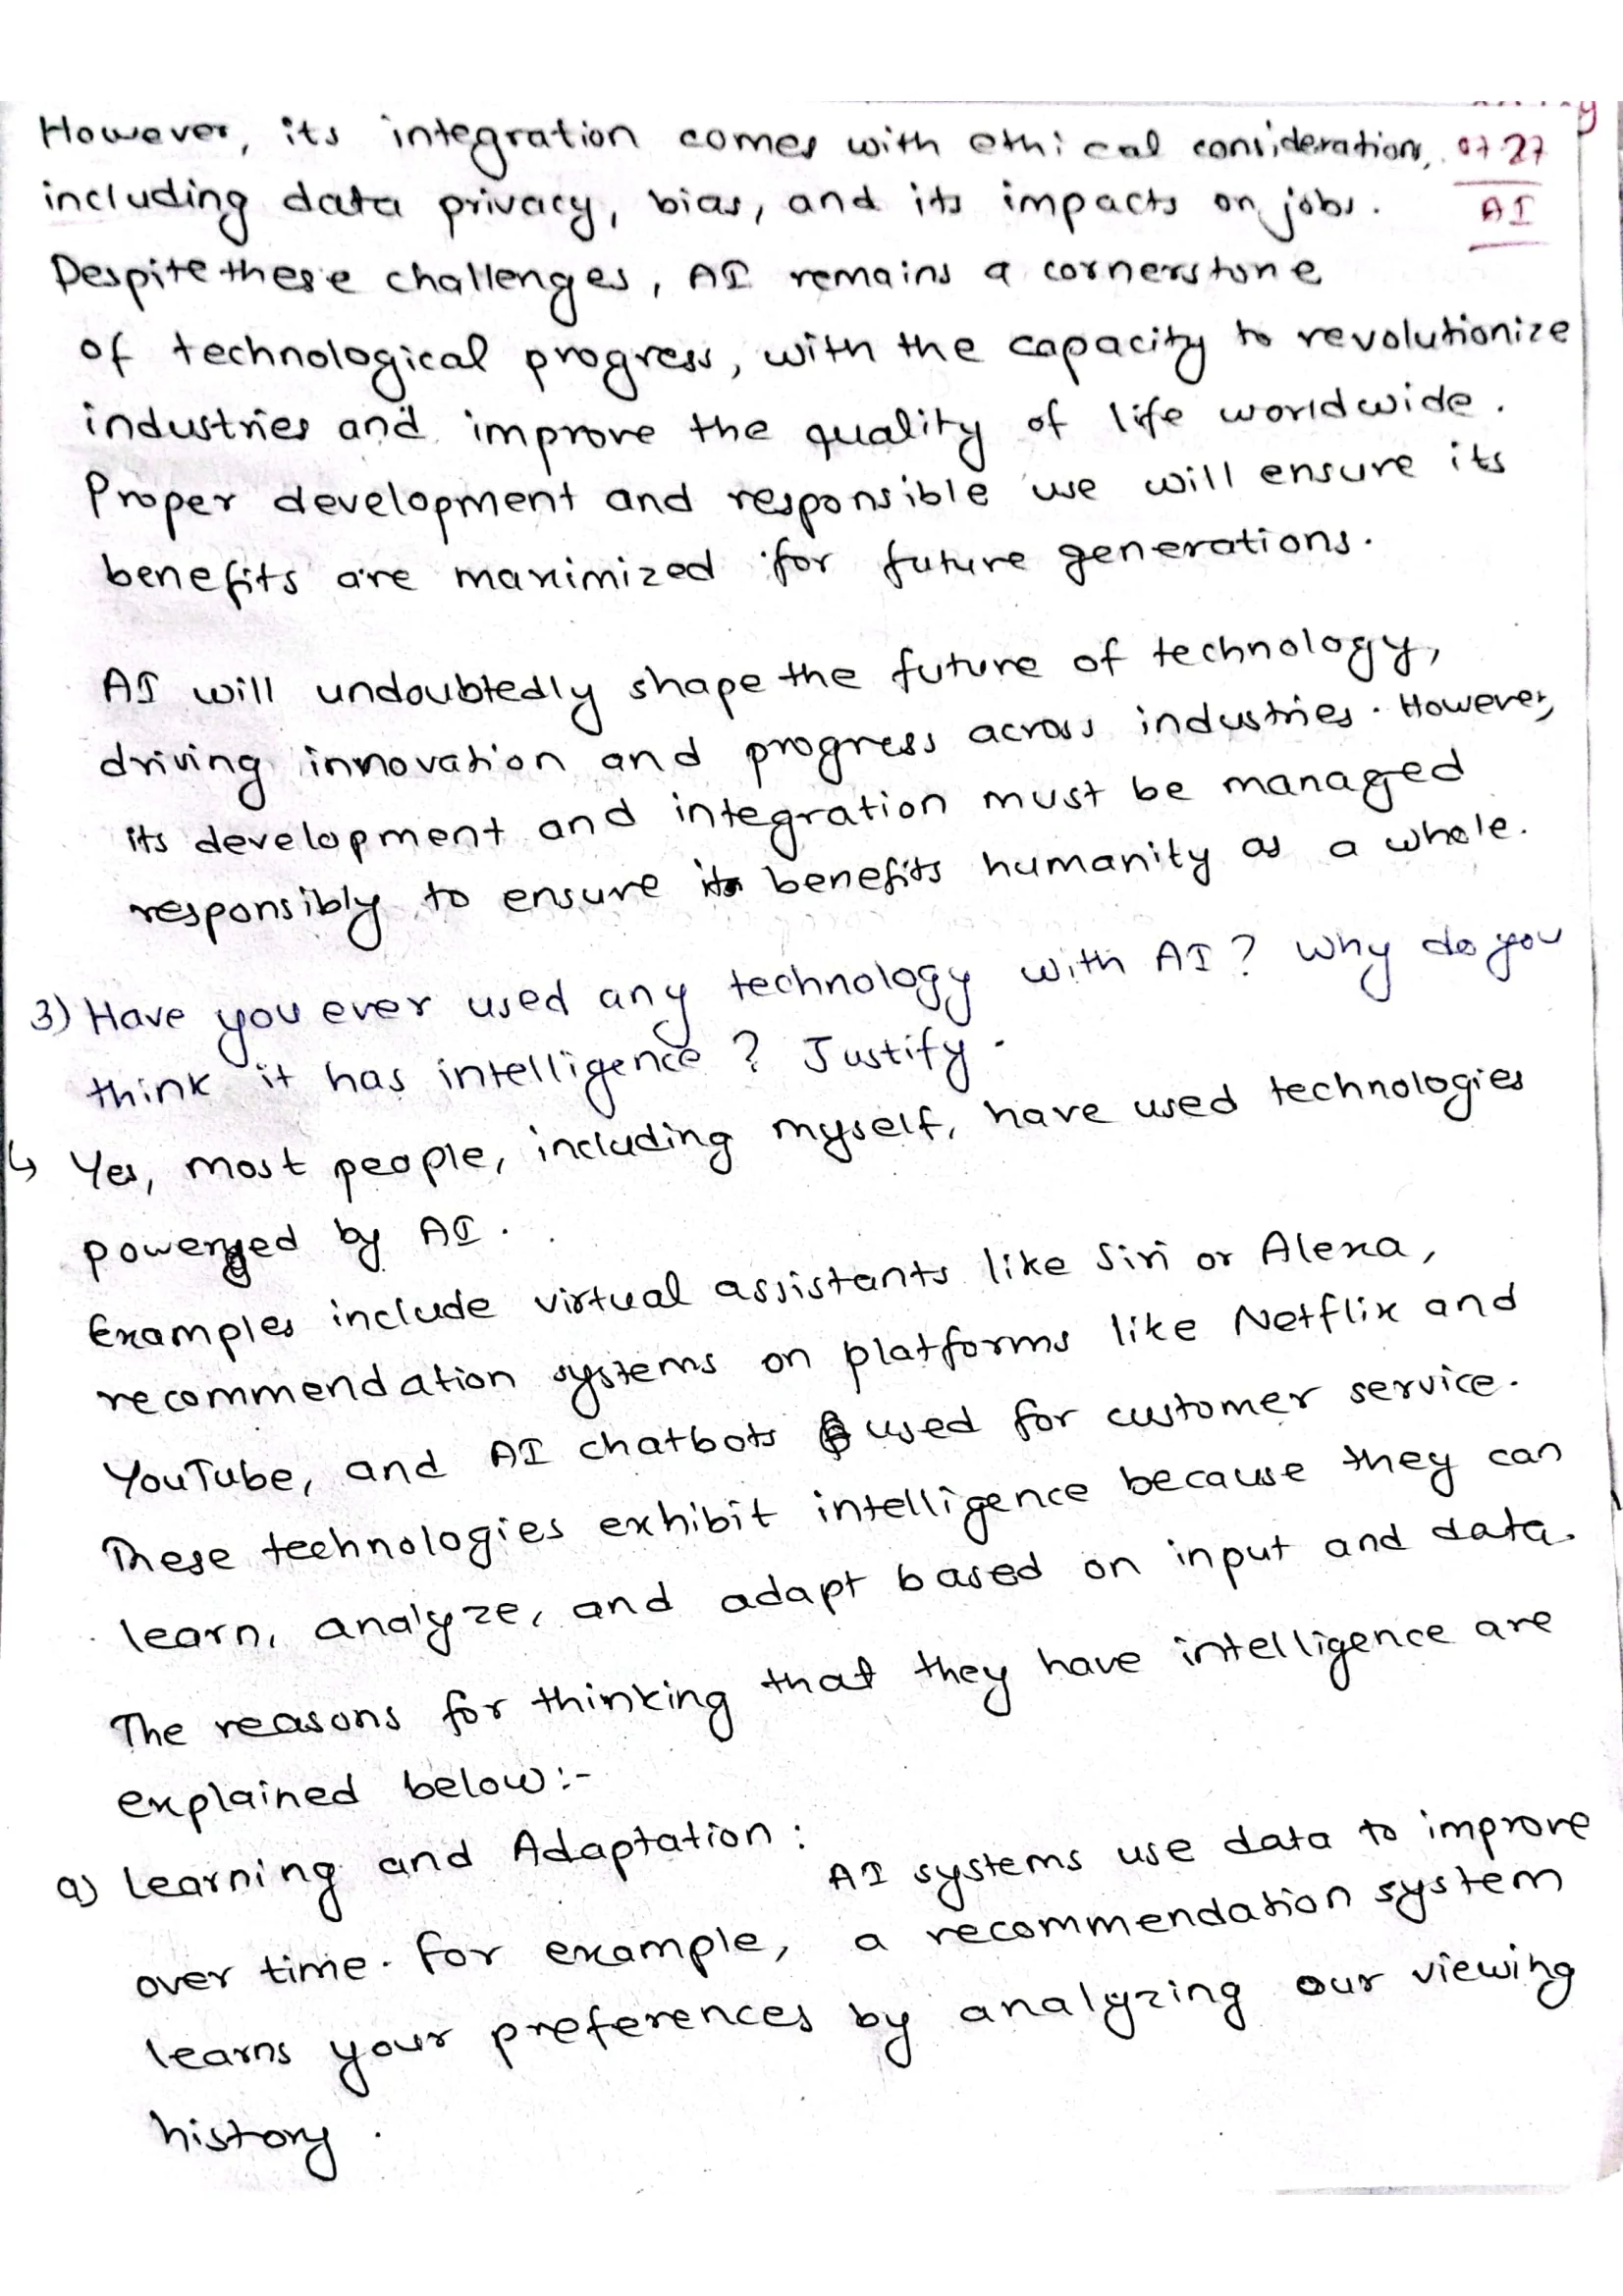 However, its integration comes with ethical consideration, 07.27
including data privacy, bias, and its impacts on jobs. AI
Despite these challenges, AI remains a cornerstone
of technological progress, with the capacity to revolutionize
industries and improve the quality of life worldwide.
Proper development and responsible use will ensure its
benefits are maximized for future generations.
AI will undoubtedly shape the future of technology,
driving innovation and progress across industries. However,
its development and integration must be managed
responsibly to ensure its benefits humanity as a whole.
3) Have you ever used any technology with AI? Why do you
think it has intelligence? Justify.
↳ Yes, most people, including myself, have used technologies
powered by AI.
Examples include virtual assistants like Siri or Alexa,
recommendation systems on platforms like Netflix and
YouTube, and AI chatbots used for customer service.
These technologies exhibit intelligence because they can
learn, analyze, and adapt based on input and data.
The reasons for thinking that they have intelligence are
explained below:-
a) Learning and Adaptation: AI systems use data to improve
over time. For example, a recommendation system
learns your preferences by analyzing our viewing
history.